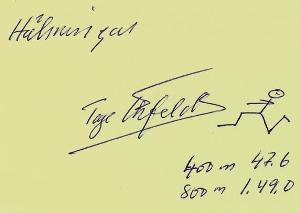 Hälsningar
Tage Ekfeldt
400 m 47.6
800 m 1.49.0